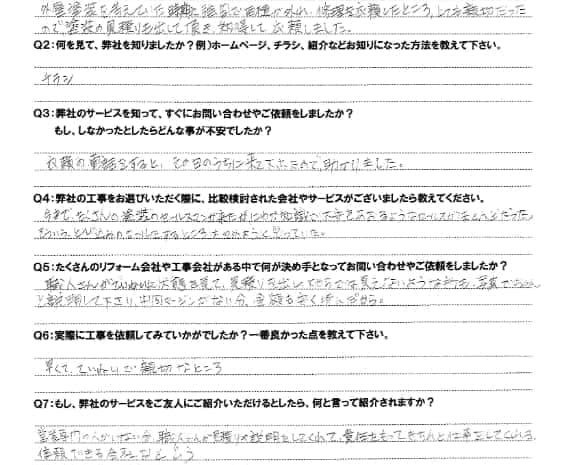 外壁塗装を考えていた時期に強風で雨樋が外れ、修理を依頼したところ、とても親切だった
ので塗装の見積りを出して頂き、納得して依頼しました。
Q2：何を見て、弊社を知りましたか？例）ホームページ、チラシ、紹介などお知りになった方法を教えて下さい。
チラシ
Q3：弊社のサービスを知って、すぐにお問い合わせやご依頼をしましたか？
もし、しなかったとしたらどんな事が不安でしたか？
依頼の電話をすると、その日のうちに来て下さったので、助かりました。
Q4：弊社の工事をお選びいただく際に、比較検討された会社やサービスがございましたら教えてください。
今まで、たくさんの塗装のセールスマンが来たが
Q5：たくさんのリフォーム会社や工事会社がある中で何が決め手となってお問い合わせやご依頼をしましたか？
職人さんがていねいに状態を見て、見積りを出して
と説明して下さり、中間マージンがない分、金額も安く済んだから。
Q6：実際に工事を依頼してみていかがでしたか？一番良かった点を教えて下さい。
早くて、ていねいで、親切なところ
Q7：もし、弊社のサービスをご友人にご紹介いただけるとしたら、何と言って紹介されますか？
職人さんが見積りや説明をしてくれて、責任をもってきちんと仕事をしてくれる、
信頼できる会社